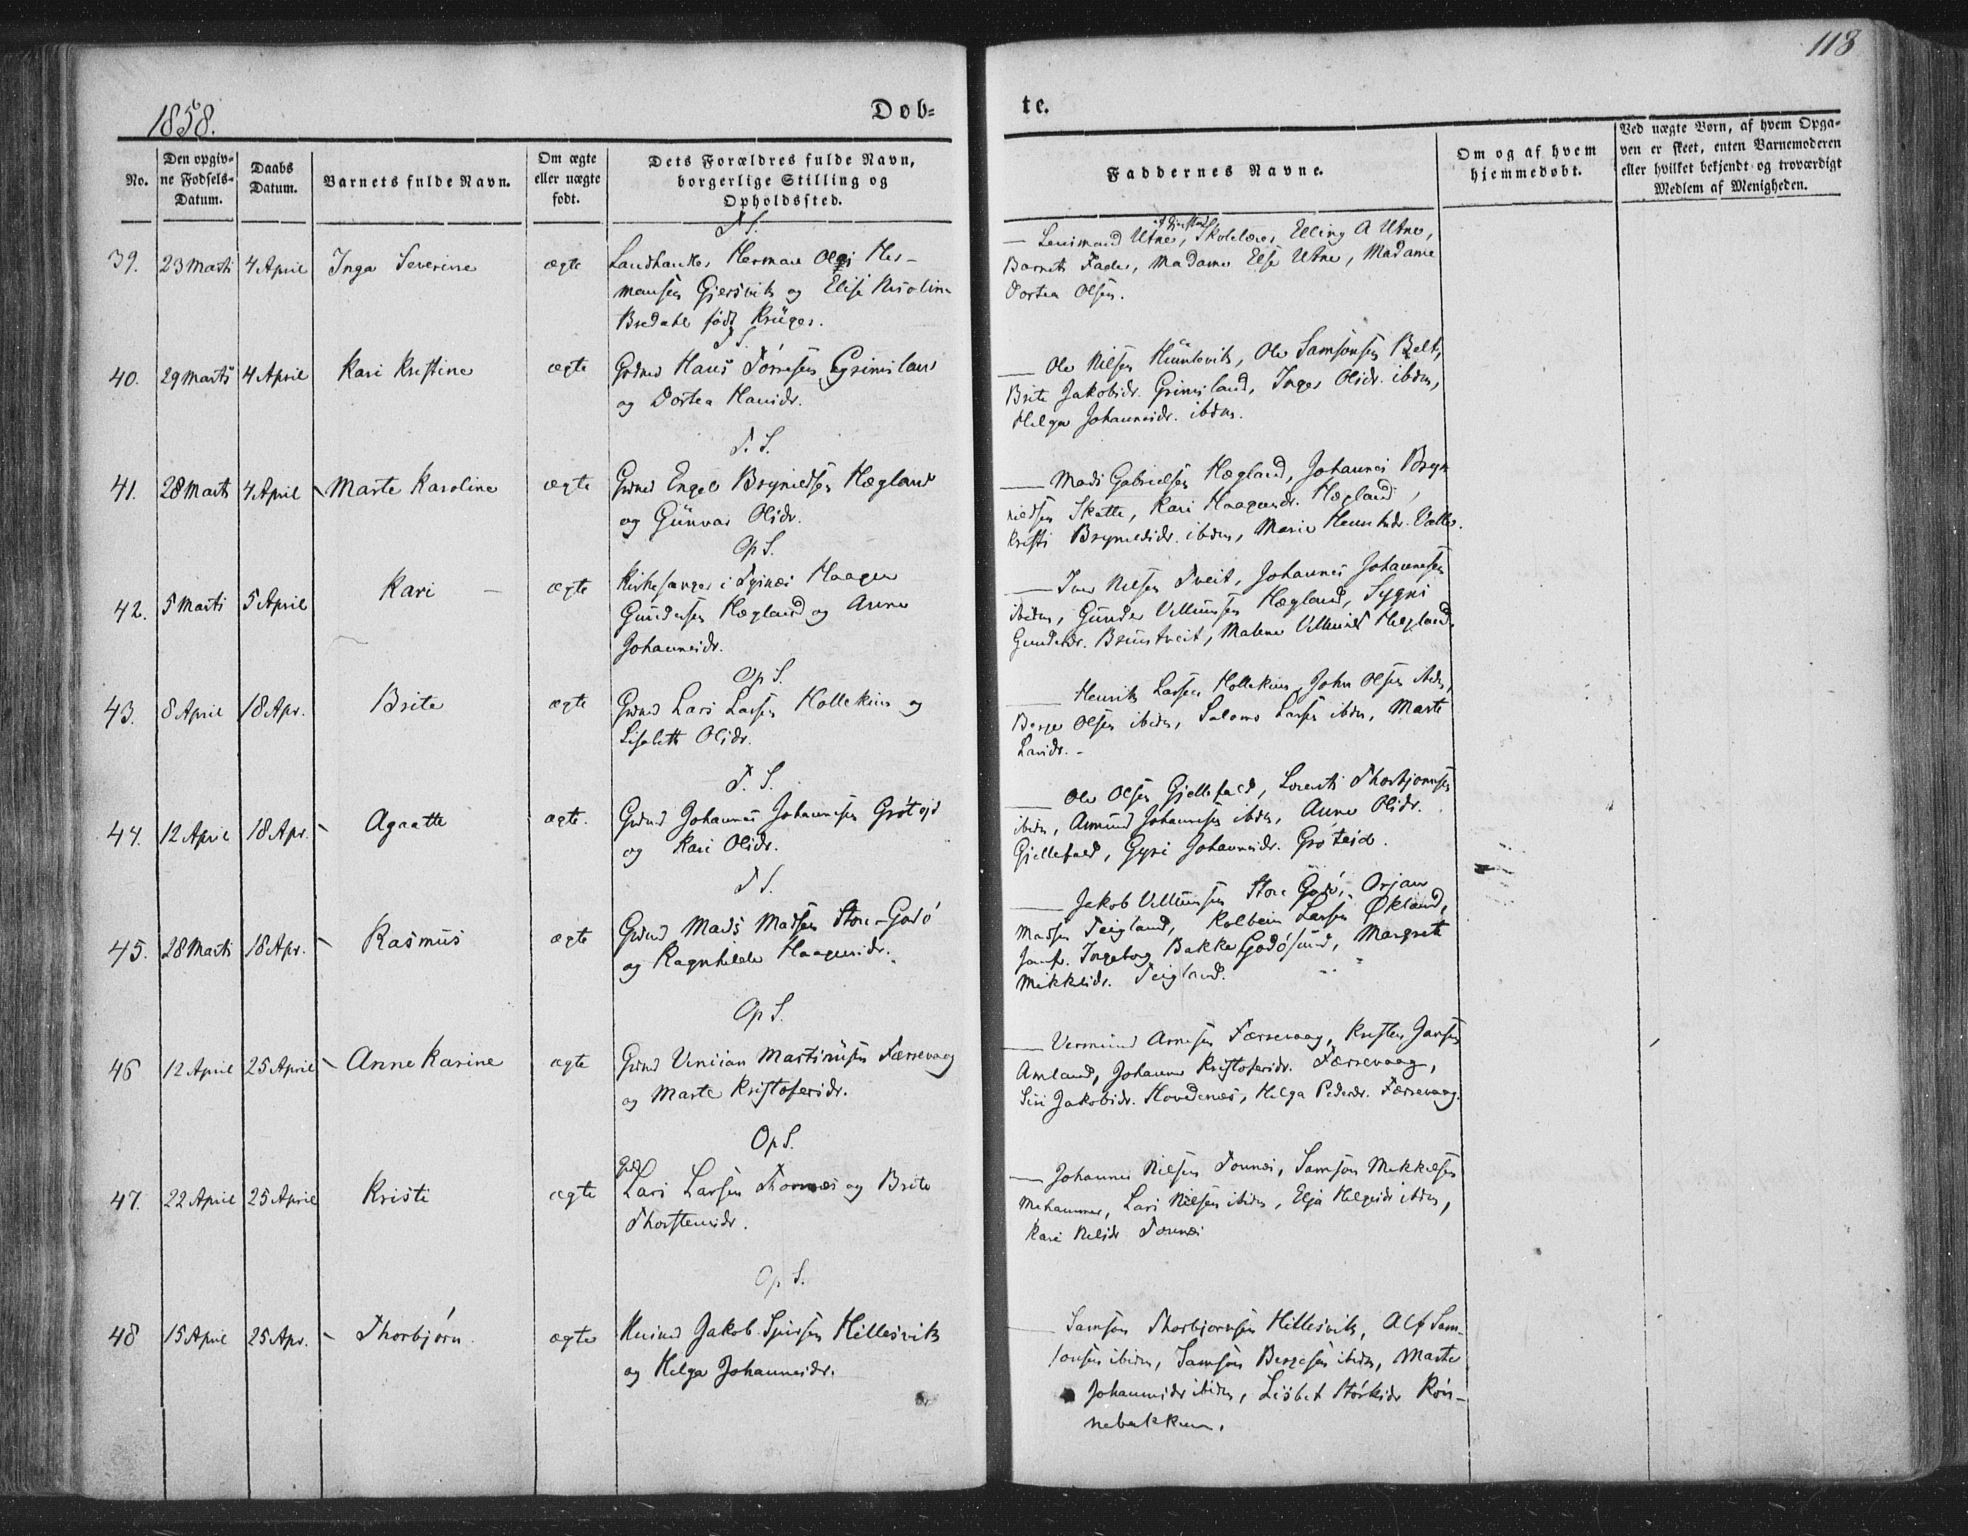 118
1858.
Døb=
te.
No.
Den opgiv-
ne Fødsels-
Datum.
Daabs
Datum.
Barnets fulde Navn.
Om ægte
eller uægte
født.
Dets Forældres fulde Navn,
borgerlige Stilling og
Opholdssted.
Faddernes Navne.
Om og af hvem
hjemmedøbt.
Ved uægte Børn, af hvem Opga-
ven er skeet, enten Barnemoderen
eller hvilket bekjendt og troværdigt
Medlem af Menigheden.
39. 23 Marts 4 April Inga Severine ægte
T. S.
Landhandler Herman Olai Her-
mansen Gjersvik og Elise Nicoline
Bredahl født Krüger.
Lensmand Utne, Skolelærer Elling A Utne,
Barnets Fader, Madame Else Utne, Madame
Dortea Olsen.
40. 29 Marts 4 April Kari Kristine ægte
T. S.
Grdmd Hans Tørresen Grimsland
og Dortea Hansdr.
Ole Nilsen, Ole Samsonsen Belt,
Brite Jakobsdr. Grimsland, Inger Olsdr. ibdm,
Helga Johannesdr. ibdm.
41. 28 Marts 4 April Marte Karoline ægte
T. S.
Grdmd Engel Brynildsen Hægland
og Gunvor Olsdr.
Mads Gabrielsen Hægland, Johannes Bryn
nildsen Skatte, Kari Haagensdr. Hægland,
Kristi Brynildsdr. ibdm, Marie
42. 5 Marts 5 April Kari ægte
Op S.
Kirkesanger i Tysnæs Haagen
Gundersen Hægland og Anne
Johannesdr.
Iver Nilsen Tveit, Johannes Johannesen
ibidm, Gunder Villumsen Hægland, Sygni
Gundersdr. Bruntveit, Malene Hægland.
43. 8 April 18 Apr. Brite ægte
Op S.
Grdmd Lars Larsen Hollekim og
Lisabeth Olsdr.
Henrik Larsen Hollekim, John Olsen ibdm,
Berge Olsen ibidm, Salomo Larsen ibdm, Marte
Larsdr.
44. 12 April 18 Apr. Agaatte ægte.
T. S.
Grdmd Johannes Johannesen
og Kari Olsdr.
Ole Olsen Gjellefald, Lorents Thorbjørnsen
ibidm, Amund Johannesen ibdm, Anne Olsdr.
Gjellefald, Gyri Johannesdr.
45. 28 Marts 18 Apr. Rasmus ægte
T. S.
Grdmd Mads Madsen Store-Godø
og Ragnhilde Haagensdr.
Jakob Villumsen Store Godø, Ørjan
Madsen Teigland, Kolbein Larsen Økland,
Jomfr. Ingeborg Bakke Godøsund, Margrete
Mikkelsdr. Teigland.
46 12 April 25 April Anne Karine ægte
Op S.
Grdmd Vincian Martinusen Færrevaag
og Marte Kristofersdr.
Vermund Arnesen Færrevaag, Kristen Jansen
Amland, Johanne Kristofersdr. Færrevaag,
Siri Jakobsdr. Hovdenæs, Helga Pedersdr. Færrevaag.
47. 22 April 25 April Kristi ægte
Op S.
Grdmd
Lars Larsen og Brite
Thorstensdr.
Johannes Nilsen Tonnæs, Samson Mikkelsen
Mehammer, Lars Nilsen ibidm, Elja Helgesdr ibdm,
Kari Nilsdr Tonnæs
48 15 April 25 Apr. Thorbjørn ægte
Op S.
Husmd Jakob Hillesvik
og Helga Johannesdr.
Samson Thorbjørnsen Hillesvik, Alf Sam-
sonsen ibidm, Samson Bergesen ibidm, Marte
Johannesdr ibidm, Lisbet Størksdr Røn-
nebakken.